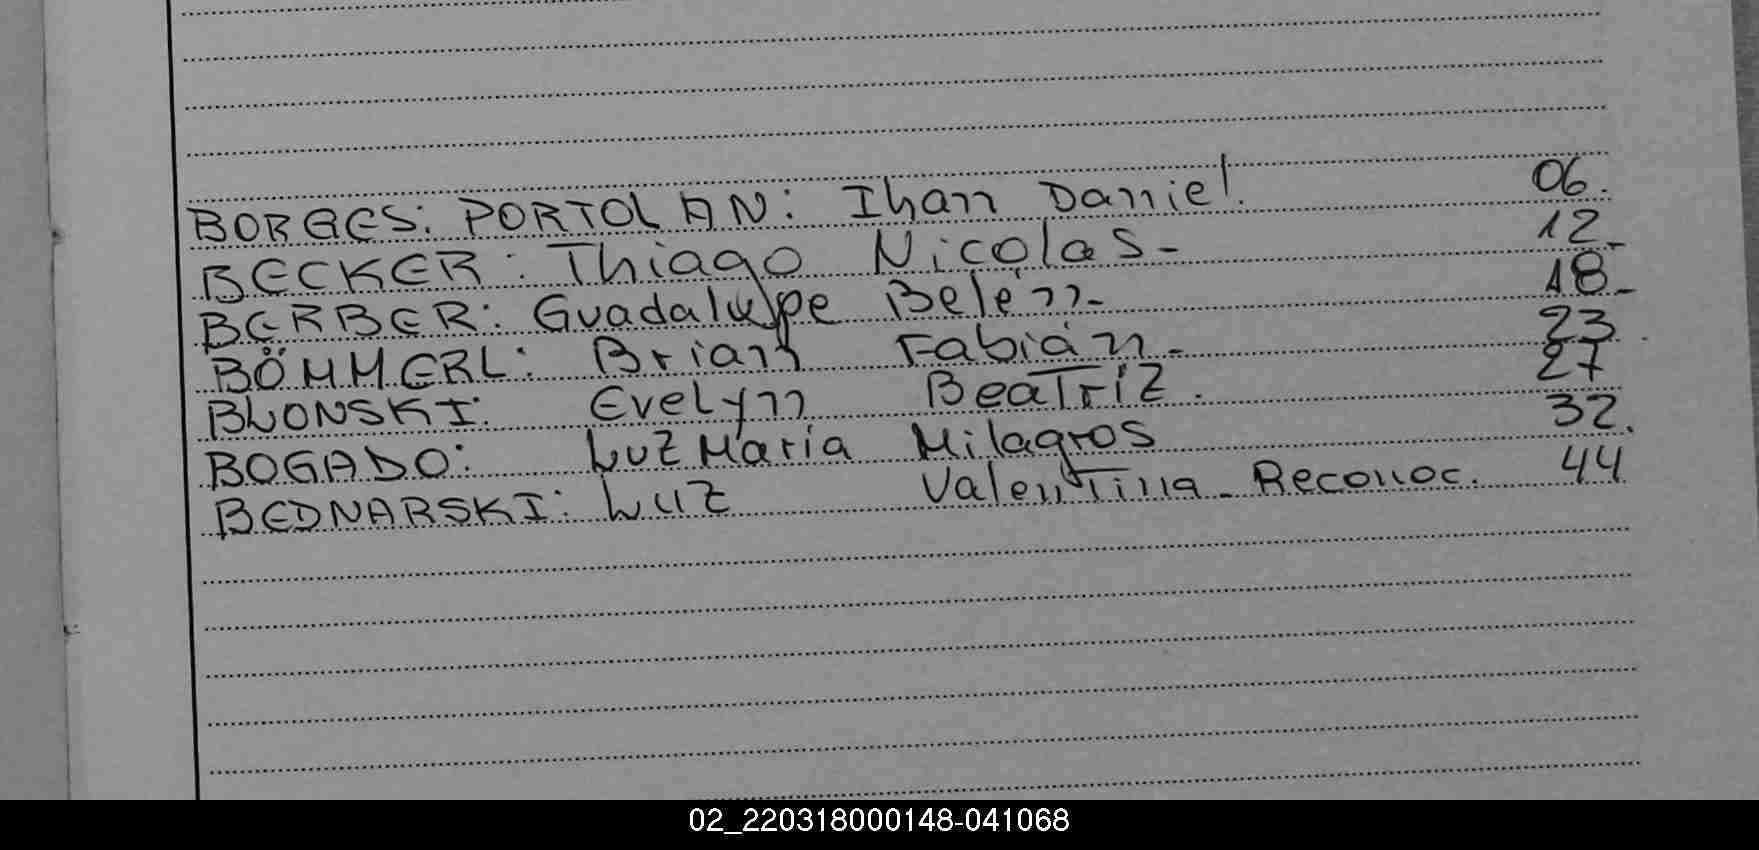 BORGES: PORTOLAN: Ihan Daniel. 06.
BECKER: Thiago Nicolas- 12-
BERBER: Guadalupe Belén- 18-
BÖMMERL: Brian Fabián- 23.
BLONSKI: Evelyn Beatriz. 27
BOGADO: Luz María Milagros 32.
BEDNARSKI: Luz Valentina- Reconoc. 44
02_220318000148-041068